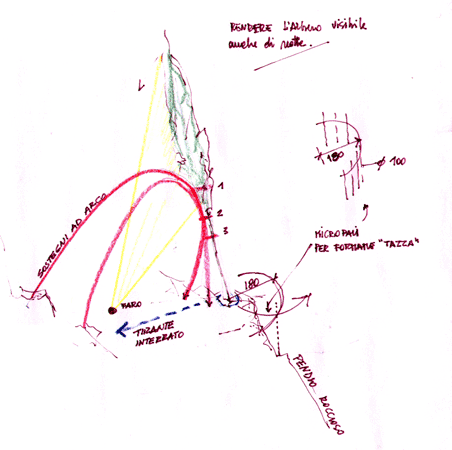 RENDERE L'ALBERO VISIBILE
anche di notte.
180
Ø 100
1
2
3
SOSTEGNI AD ARCO
MICROPALI
PER FORMARE "TAZZA"
180
FARO
TIRANTE
INTERRATO
PENDIO ROCCIOSO